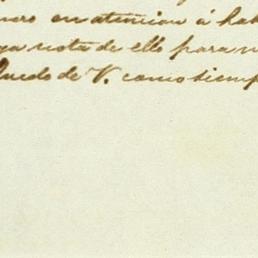 nero en atencion á hab
ya nota de ello para m
quedo de V. como siemp